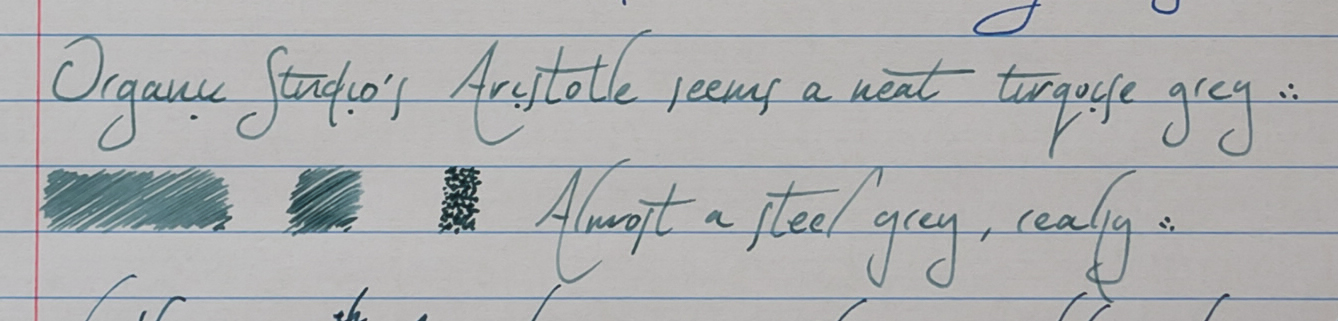 Organic Studio's Aristotle seems a neat turqoise grey ∴
Almost a steel grey, really ∴